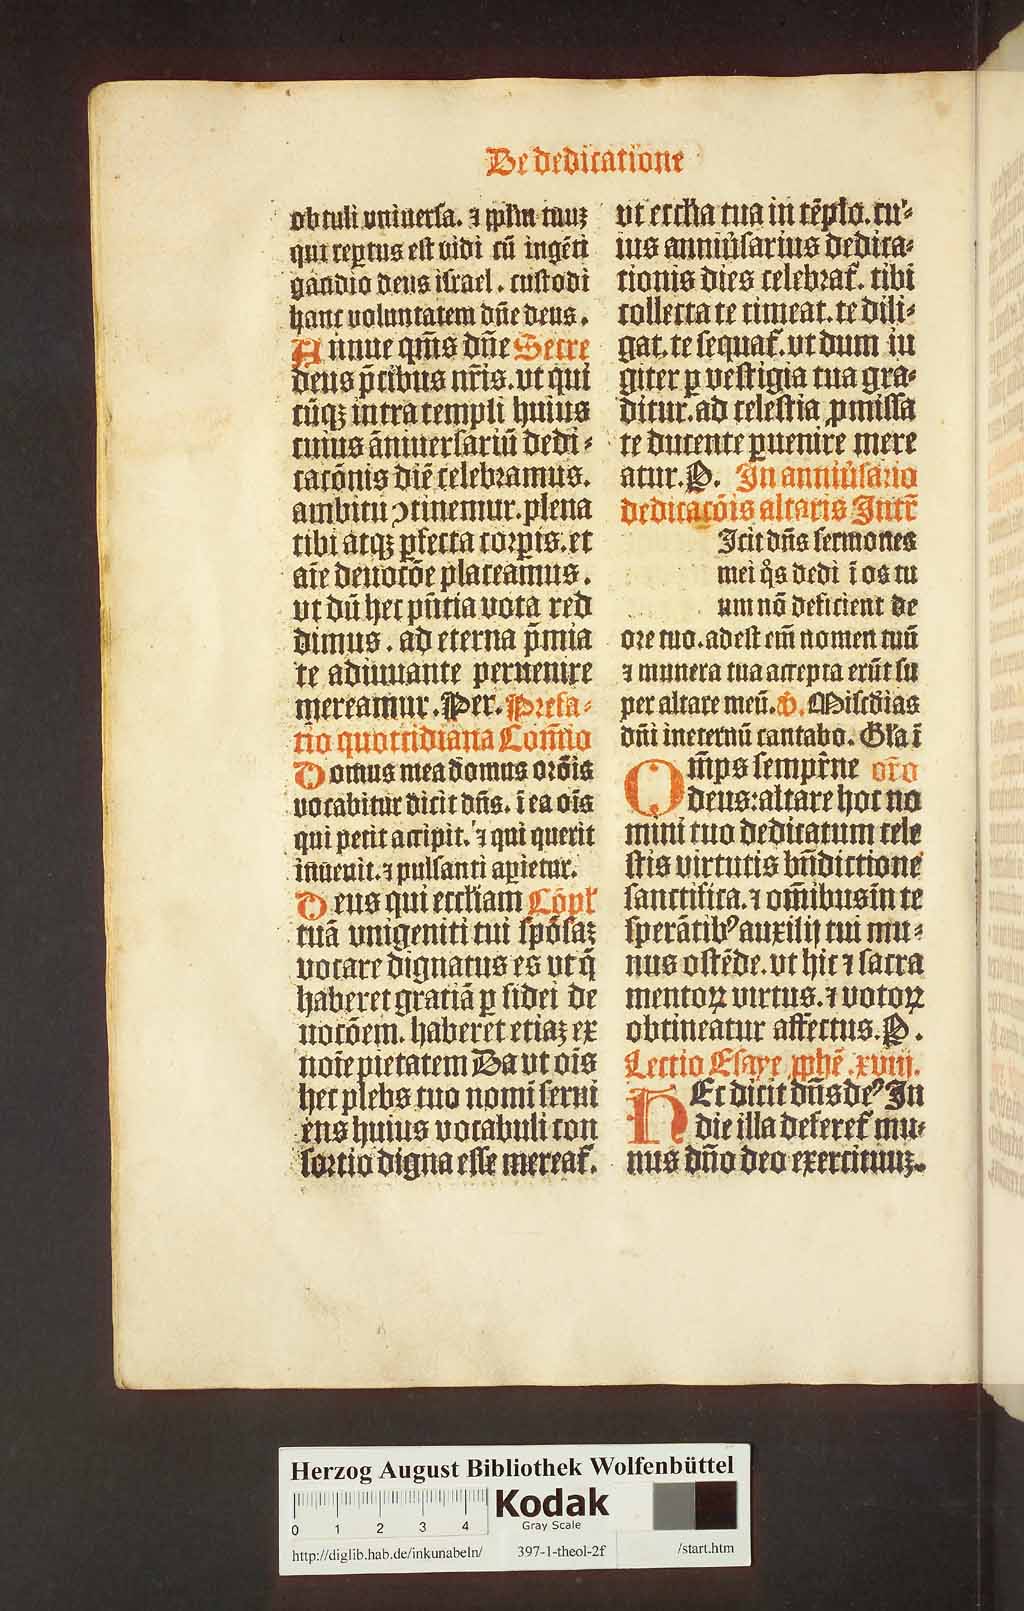 De dedicatione
obtuli vniuersa. ⁊ ꝓplm̄ tuuꝫ
qui reꝑtus est vidi cū ingēti
gaudio deus israel. custodi
hanc voluntatem dn̄e deus.
Annue qm̄s dn̄e Secre
deus p̄cibus nr̄is. vt qui
cūqꝫ intra templi huius
cuius āniuersariū dedi⸗
catōnis diē celebramus.
ambitu ꝯtinemur. plena
tibi atqꝫ ꝑfecta corꝑis. et
aīe deuotōe placeamus.
vt dū hec pn̄tia vota red
dimus. ad eterna p̄mia
te adiuuante peruenire
mereamur. Per. Prefa⸗
tio quottidiana Com̄io
Domus mea domus orōis
vocabitur dicit dn̄s. ī ea oīs
qui petit accipit. ⁊ qui querit
inuenit. ⁊ pulsanti aꝑietur.
Deus qui eccl̄iam Cōpl̄
tuā vnigeniti tui spōsaꝫ
vocare dignatus es vt q̄
haberet gratiā ꝑ fidei de
uotōem. haberet etiaꝫ ex
noīe pietatem Da vt oīs
hec plebs tuo nomī serui
ens huius vocabuli con
sortio digna esse mereat᷑.
vt eccl̄ia tua in tēplo. cu⸗
ius anniu̾sarius dedica⸗
tionis dies celebrat᷑. tibi
collecta te timeat. te dili⸗
gat. te sequat᷑. vt dum iu
giter ꝑ vestigia tua gra⸗
ditur. ad celestia ꝓmissa
te ducente ꝑuenire mere
atur. P. In anniu̾sario
dedicatōis altaris Intr̄
Icit dn̄s sermones
mei q̊s dedi ī os tu
um nō deficient de
ore tuo. adest em̄ nomen tuū
⁊ munera tua accepta erūt su
per altare meū. P̄. Misc̄dias
dn̄i in eternū cantabo. Gl̄a ī
Om̄ps sempr̄ne or̄o
deus: altare hoc no
mini tuo dedicatum cele
stis virtutis bn̄dictione
sanctifica. ⁊ om̄ibus in te
sperātibꝰ auxilij tui mu⸗
nus ostēde. vt hic ⁊ sacra
mentoꝝ virtus. ⁊ votoꝝ
obtineatur affectus. P.
Lectio Esaye ꝓphē. xviij.
HEc dicit dn̄s deꝰ In
die illa deferet᷑ mu⸗
nus dn̄o deo exercituuꝫ.
Herzog August Bibliothek Wolfenbüttel
Kodak
Gray Scale
0 1 2 3 4
http://diglib.hab.de/inkunabeln/ 397-1-theol-2f /start.htm